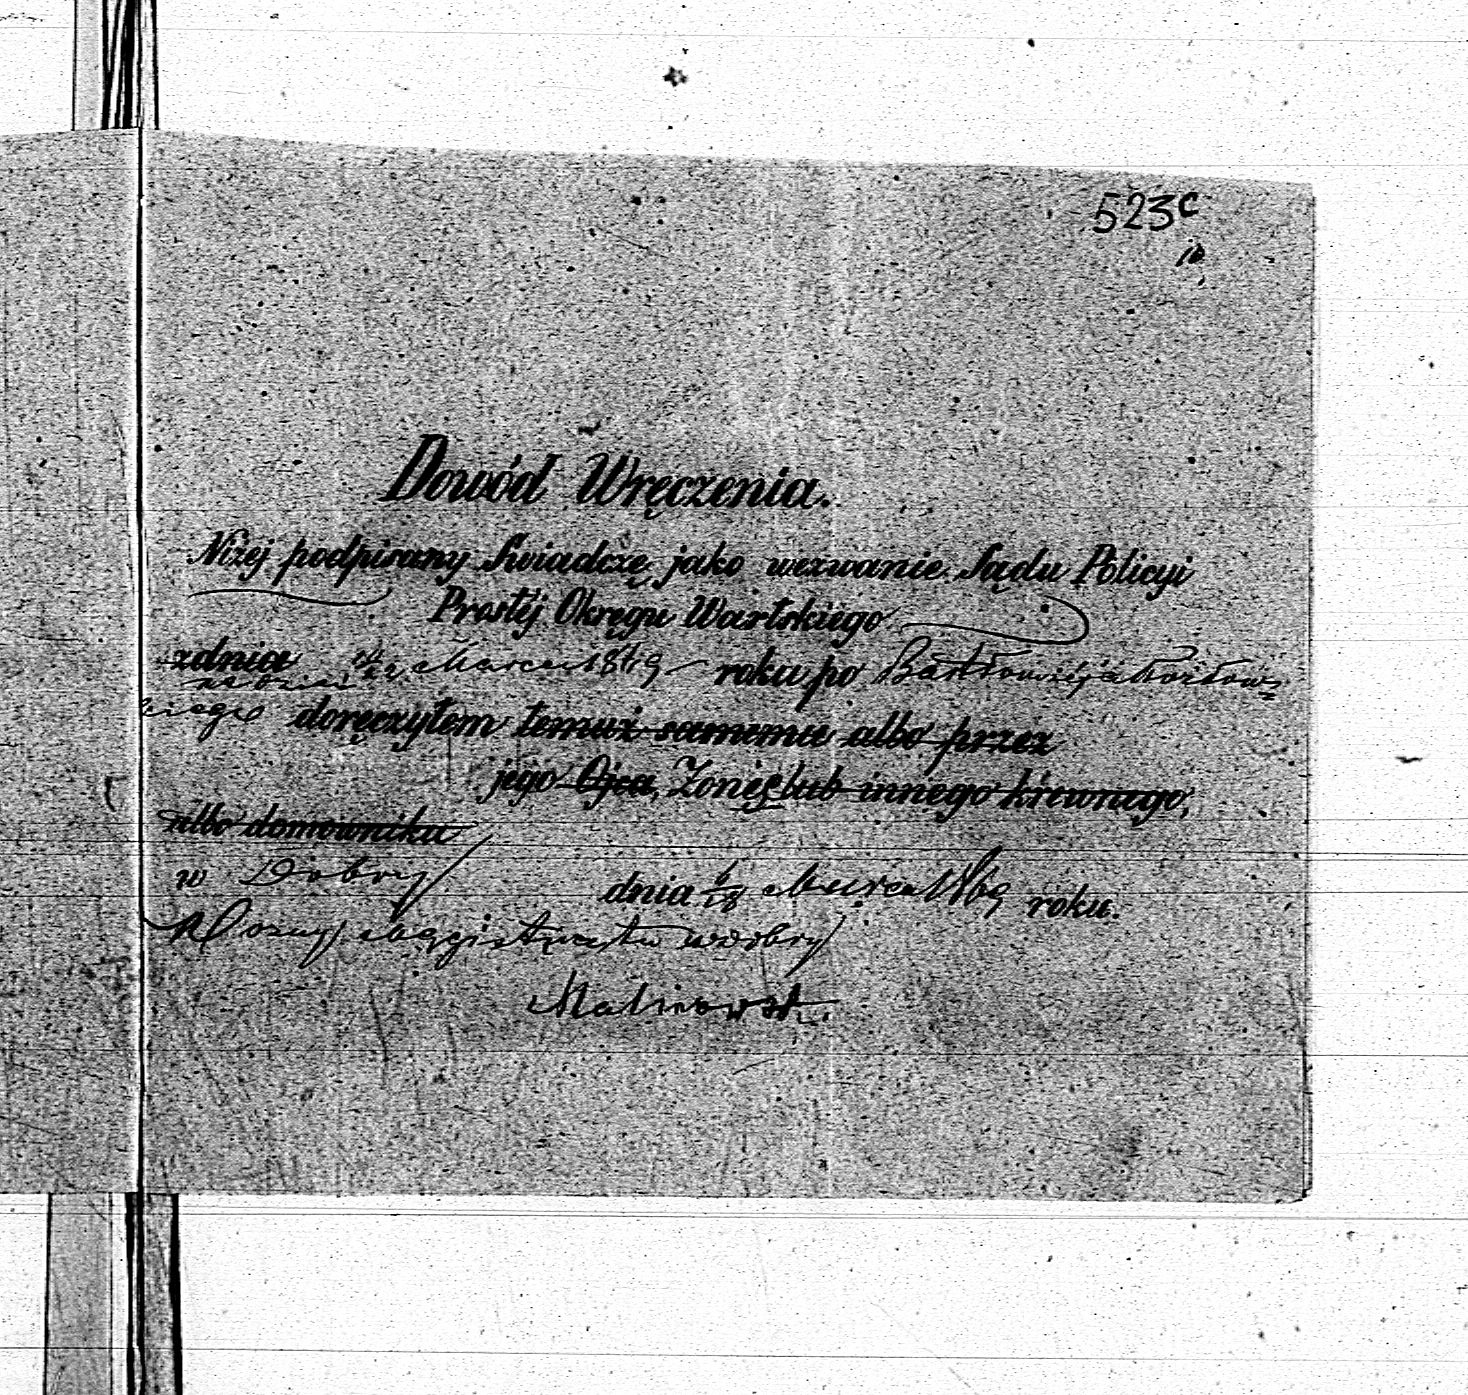 523c
Dowód Wręczenia.
Niżej podpisany Swiadczę jako wezwanie Sądu Policyi
Prostéj Okręgu Wartskiego
zdnia Marca 1869 roku po Bartłomieja Kozłows
na dzień
kiego doręczyłem temuż samemu albo przez
jego Ojca, Zonię lub innego krewnego,
albo domownika
w Dobry dnia 6/18 Marca 1869 roku.
Woźny Magistratu w Dobry
Malinowski